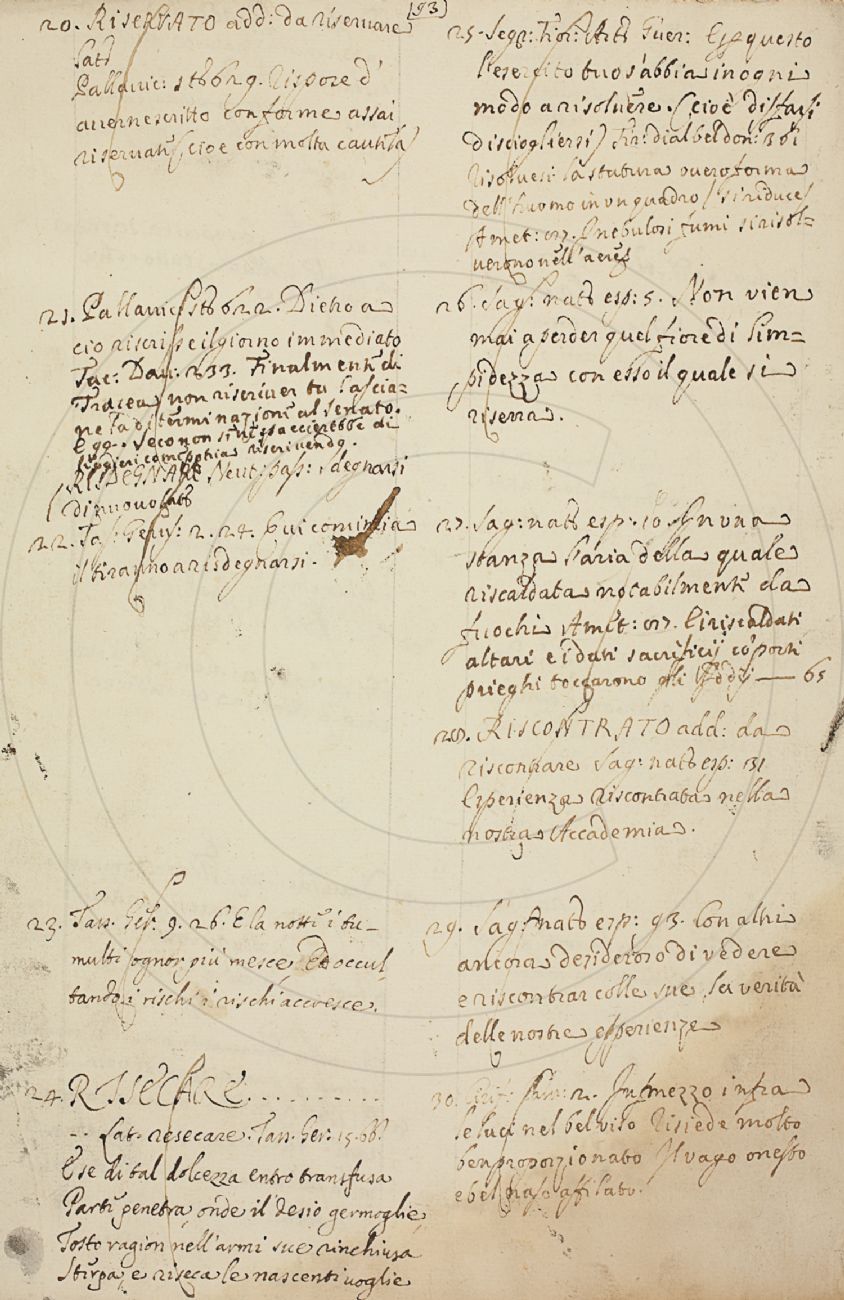 (93)
20. RISERVATO add: da riservare
Pallavic: stō 629. Rispose d'
avernescritto conforme assai
riservatī (cioè con molta cautela)
21. Pallavic: stō 622. Di che a
ciò riscrisse il giorno immediato
Tac: Dav: 233. Finalmentē di
Tracea non riscriver tu lascia=
ne la diterminazionē al senato.
RISDEGNARE Neut: pass: sdegnarsi
di nuovo
22. Tas: Gerus: 2. 24. Qui comincia
il tiranno a risdegnarsi.
23. Tass. Ger: 9. 26. E la nottē i tu-
multi ognor più mesce, Ed occul_
tando i rischi i rischi accresce.
24. RISECARE . . . . . . . . . .
-- Lat. resecare. Tass. Ger: 15. 66.
E se di tal dolcezza entro transfusa
Partē penetra ōnde il desio germoglie,
Tosto ragion nell'armi sue rinchiusa
Sterpa, e riseca le nascenti voglie
25. Segr: Fior: Artē Guer: E se questo
l'esercito tuo s'abbia in ogni
modo a risolvere (cioè disfarsi
disciogliersi) Fir: dial bel don: 361
Risolvesi la statura overo forma
dell'huomo in un quadro (si riduce)
Amet: 97. I nebulosi fumi si risol=
verono nell'aere
26. Sag: natō esp: 5. Non vien
mai a perder quel fiore di lim=
pidezza con esso il quale si
riserra.
27. Sag: natō esp: 10 In una
stanza l'aria della quale
riscaldata notabilmentē da
fuochi Amēt: 97. Li riscaldati
altari e i dati sacrificij cō porti
prieghi toccarono gli Iddij — 65
28. RISCONTRATO add: da
riscontrare Sag: natō esp: 131
Esperienza riscontrata nella
nostra Accademia.
29. Sag: natō esp: 93. Con altri
ancora desideroso di vedere
e riscontrar colle sue la verità
delle nostre esperienze
30. 2. In mezzo infra
le luci nel bel viso Risiede molto
ben proporzionato Il vago onesto
e bel naso affilato.